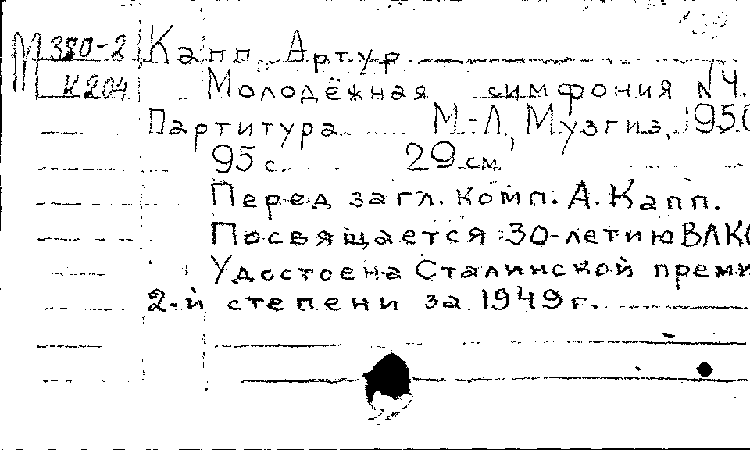 М 380-2 Капп, Артур.
К204 Молодёжная симфония №4.
Партитура. М.-Л., Музгиз, 195
95 с. 29 см.
Перед загл. комп. А. Капп.
Посвящается 30-летию ВЛКС
Удостоена Сталинской преми
2-й степени за 1949 г.